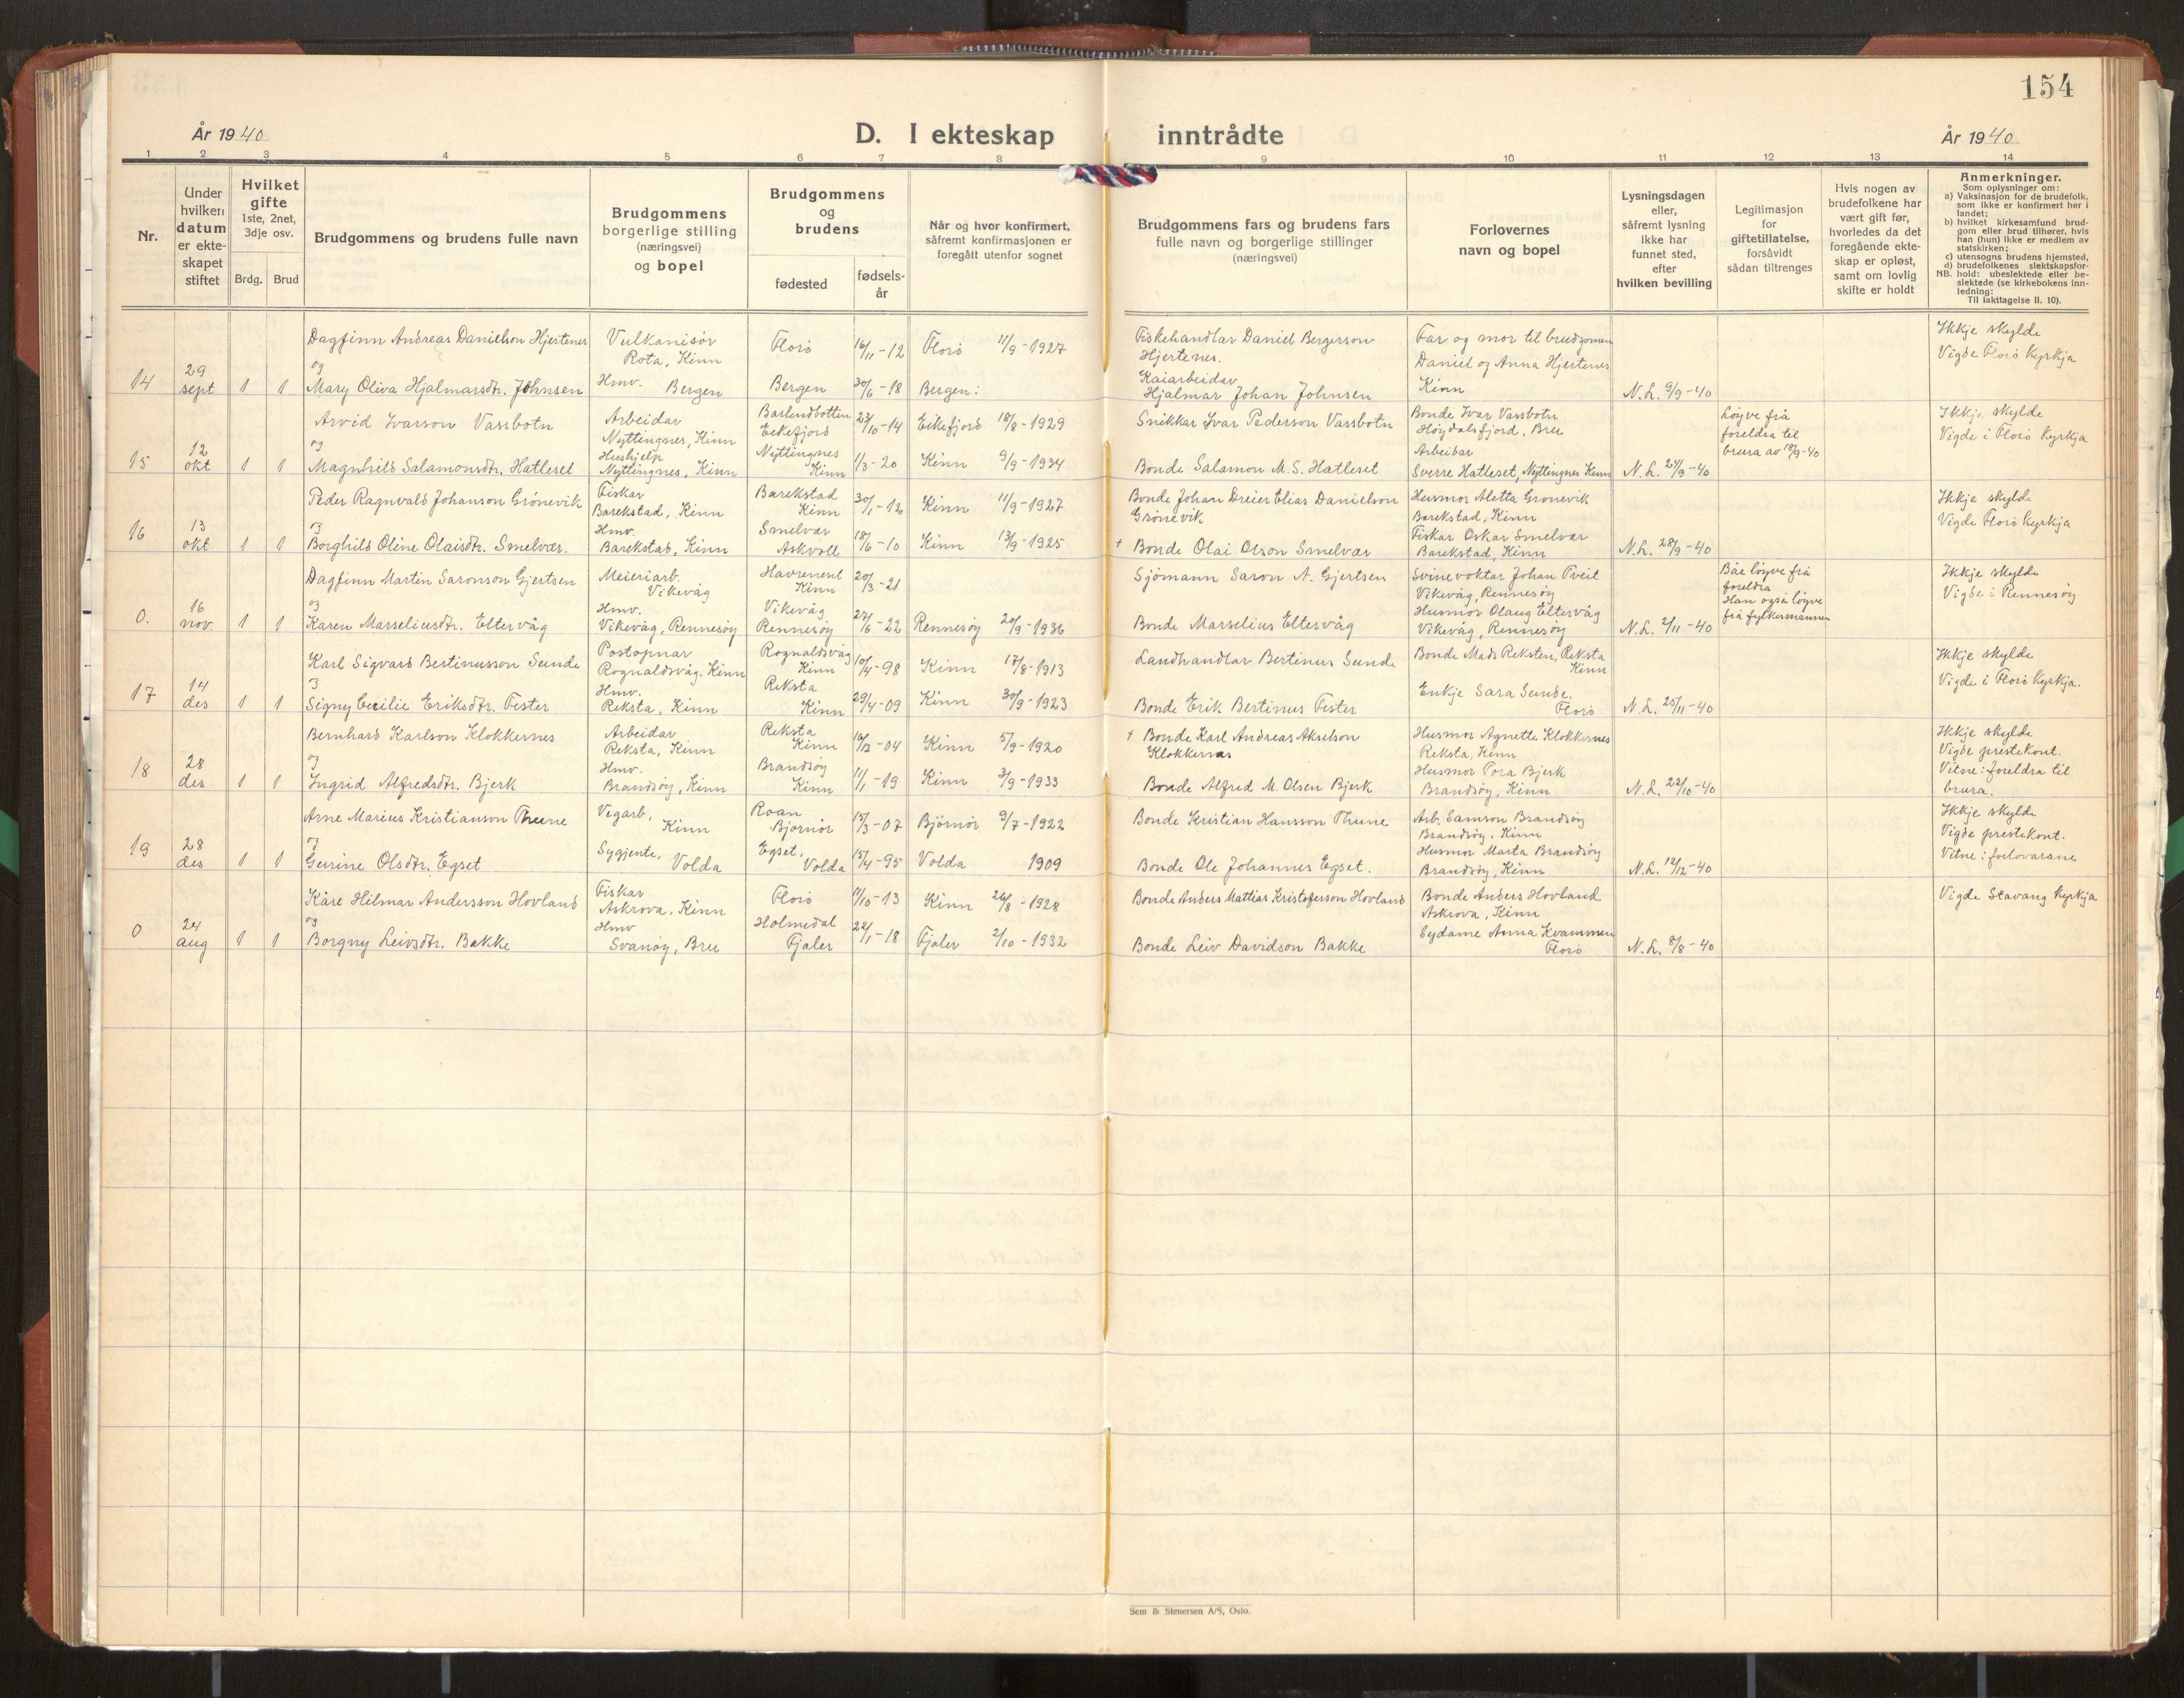 154
År 1940
D. I ekteskap inntrådte
År 1940
1 2 3 4 5 6 7 8 9 10 11 12 13 14
Nr.
Under
hvilken
datum
er ekte-
skapet
stiftet
Hvilket
gifte
1ste, 2net,
3dje osv.
Brdg. Brud
Brudgommens og brudens fulle navn
Brudgommens
borgerlige stilling
(næringsvei)
og bopel
Brudgommens
og
brudens
fødested
fødsels-
år
Når og hvor konfirmert,
såfremt konfirmasjonen er
foregått utenfor sognet
Brudgommens fars og brudens fars
fulle navn og borgerlige stillinger
(næringsvei)
Forlovernes
navn og bopel
Lysningsdagen
eller,
såfremt lysning
ikke har
funnet sted,
efter
hvilken bevilling
Legitimasjon
for
giftetillatelse,
forsåvidt
sådan tiltrenges
Hvis nogen av
brudefolkene har
vært gift før,
hvorledes da det
foregående ekte-
skap er opløst,
samt om lovlig
skifte er holdt
Anmerkninger.
Som oplysninger om:
a) Vaksinasjon for de brudefolk,
som ikke er konfirmert her i
landet;
b) hvilket kirkesamfund brud-
gom eller brud tilhører, hvis
han (hun) ikke er medlem av
statskirken;
c) utensogns brudens hjemsted,
d) brudefolkenes slektskapsfor-
NB. hold: ubeslektede eller be-
slektede (se kirkebokens inn-
ledning:
Til iakttagelse II. 10).
14
29
sept
1 1
Dagfinn Andreas Danielson Hjertenes
og
Mary Oliva Hjalmarsdtr. Johnsen
Vulkanisør
Rota, Kinn
Hmv. Bergen
Florø 16/11-12
Bergen 30/6-18
Florø 11/9-1927
Bergen:
Fiskehandlar Daniel Bergerson
Hjertenes.
Kaiarbeidar
Hjalmar Johan Johnsen
Far og mor til brudgomen
Daniel og Anna Hjertenes
Kinn
N.L. 9/9-40
Ikkje skylde
Vigde Florø Kyrkja
15
12
okt
1 1
Arvid Ivarson Vassbotn
og
Magnhild Salamonsdtr. Hatleset
Arbeidar
Nyttingnes, Kinn
Hushjelp
Nyttingnes, Kinn
Barlindbotten
Eikefjord 23/10-14
Nyttingnes
Kinn 1/3-20
Eikefjord 18/8-1929
Kinn 9/9-1934
Snikkar Ivar Pederson Vassbotn
Bonde Salamon M.S. Hatleset
Bonde Ivar Vassbotn
Høydalsfjord, Bru
Arbeidar
Sverre Hatleset, Nyttingnes Kinn
N.L. 24/9-40
Løyve frå
foreldra til
brura av 18/9-40
Ikkje skylde
Vigde i Florø Kyrkja
16
13
okt
1 1
Peder Ragnvald Johanson Grønevik
og
Borghild Oline Olaisdtr. Smelvær.
Fiskar
Barekstad, Kinn
Hmv.
Barekstad, Kinn
Barekstad
Kinn 30/1-12
Smelvær
Askvoll 18/6-10
Kinn 11/9-1927
Kinn 13/9-1925
Bonde Johan Dreier Elias Danielson
Grønevik
+ Bonde Olai Olson Smelvær
Husmor Aletta Grønevik
Barekstad, Kinn
Fiskar Oskar Smelvær
Barekstad, Kinn
N.L. 28/9-40
Ikkje skylde
Vigde Florø Kyrkja
0.
16
nov.
1 1
Dagfinn Martin Saronson Gjertsen
og
Karen Marseliusdtr. Eltervåg
Meieriarb.
Vikevåg
Hmv.
Vikevåg, Rennesøy
Havrenesel
Kinn 20/3-21
Vikevåg
Rennesøy 27/6-22
Rennesøy 20/9-1936
Sjømann Saron A. Gjertsen
Bonde Marselius Eltervåg
Svinevoktar Johan Tveit
Vikevåg, Rennesøy
Husmor Olaug Eltervåg
Vikevåg, Rennesøy
N.L. 2/11-40
Båe løyve frå
foreldra
Han også løyve
frå fylkesmannen
Ikkje skylde
Vigde i Rennesøy
17
14
des
1 1
Karl Sigvard Bertinusson Sunde
og
Signy Cecilie Eriksdtr. Fester
Postopnar
Rognaldsvåg, Kinn
Hmv.
Reksta, Kinn
Rognaldsvåg
Kinn 10/4-98
Reksta
Kinn 29/4-09
Kinn 17/8-1913
Kinn 30/9-1923
Landhandlar Bertinus Sunde
Bonde Erik Bertinus Fester
Bonde Mads Reksten, Reksta
Kinn
Enkje Sara Sunde.
Florø
N.L. 25/11-40
Ikkje skylde
Vigde i Florø Kyrkja.
18
28
des
1 1
Bernhard Karlson Klokkernes
og
Ingrid Alfredsdtr. Bjerk
Arbeidar
Reksta, Kinn
Hmv.
Brandsøy, Kinn
Reksta
Kinn 16/12-04
Brandsøy
Kinn 11/1-19
Kinn 5/9-1920
Kinn 3/9-1933
+ Bonde Karl Andreas Akselson
Klokkernes
Bonde Alfred M. Olsen Bjerk
Husmor Agnette Klokkernes
Reksta, Kinn
Husmor Tora Bjerk
Brandsøy, Kinn
N.L. 22/10-40
Ikkje skylde
Vigde prestekont.
Vitne: foreldra til
brura.
19
28
des
1 1
Arne Marius Kristianson Thune
og
Gurine Olsdtr. Egset
Vegarb,
Kinn
Sygjente, Volda
Roan
Bjørnør 15/3-07
Egset,
Volda 15/4-95
Bjørnør 9/7-1922
Volda 1909
Bonde Kristian Hansson Thune
Bonde Ole Johannes Egset.
Arb. Samson Brandsøy
Brandsøy, Kinn
Husmor Marta Brandsøy
Brandsøy, Kinn
N.L. 12/12-40
Ikkje skylde
Vigde prestekont.
Vitne: forlovarane
0
24
aug
1 1
Kåre Hilmar Andersson Hovland
og
Borgny Leivsdtr. Bakke
Fiskar
Askrova, Kinn
Hmv
Svanøy, Bru
Florø 11/10-13
Holmedal
Fjaler 22/1-18
Kinn 26/8-1928
Fjaler 2/10-1932
Bonde Anders Mattias Kristoferson Hovland
Bonde Leiv Davidson Bakke
Bonde Anders Hovland
Askrova, Kinn
Sydame Anna Kvammen
Florø
N.L. 8/8-40
Vigde Stavang Kyrkja
Sem & Stenersen A/S, Oslo.